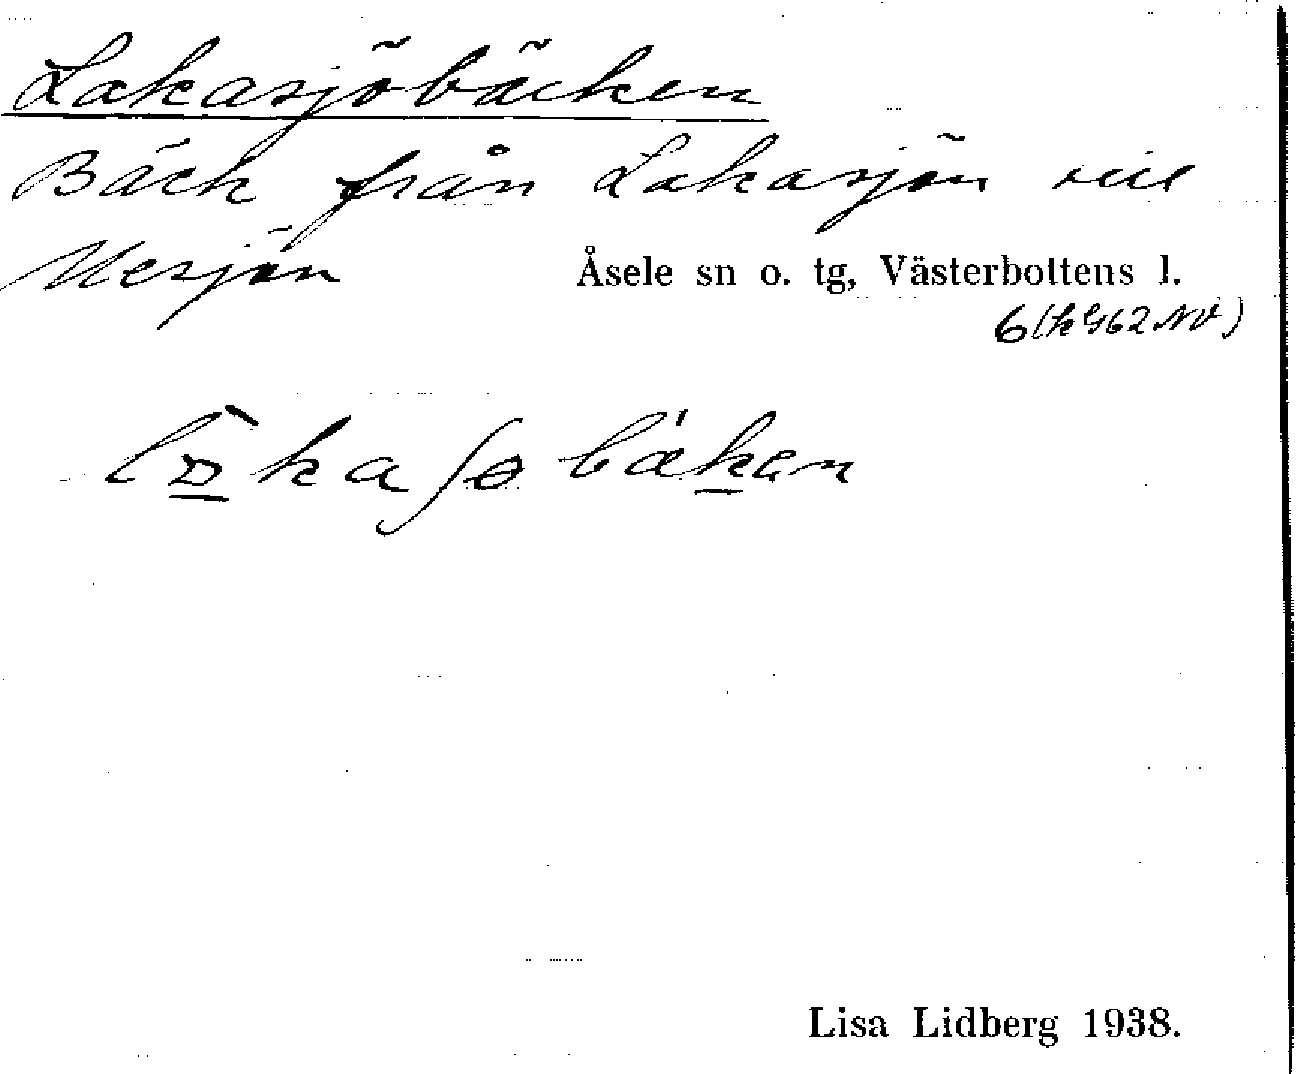 Lakasjöbäcken
Bäck från Lakasjön till
Mesjön
Åsele sn o. tg, Västerbottens l.
6 (k 962 NV)
Lisa Lidberg 1938.